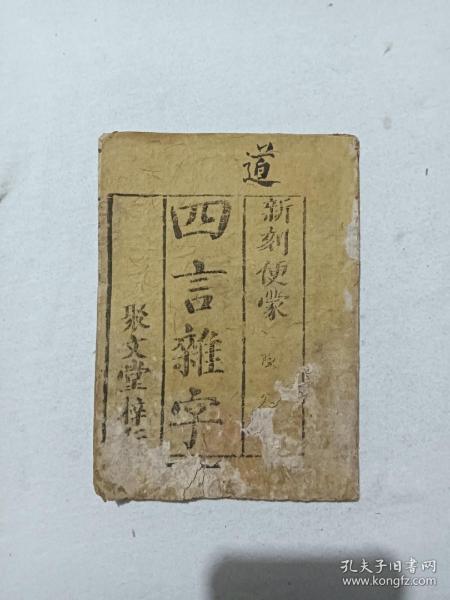 道
新刻便蒙
四言雜字
聚文堂梓行
孔夫子旧书网
www.kongfz.com